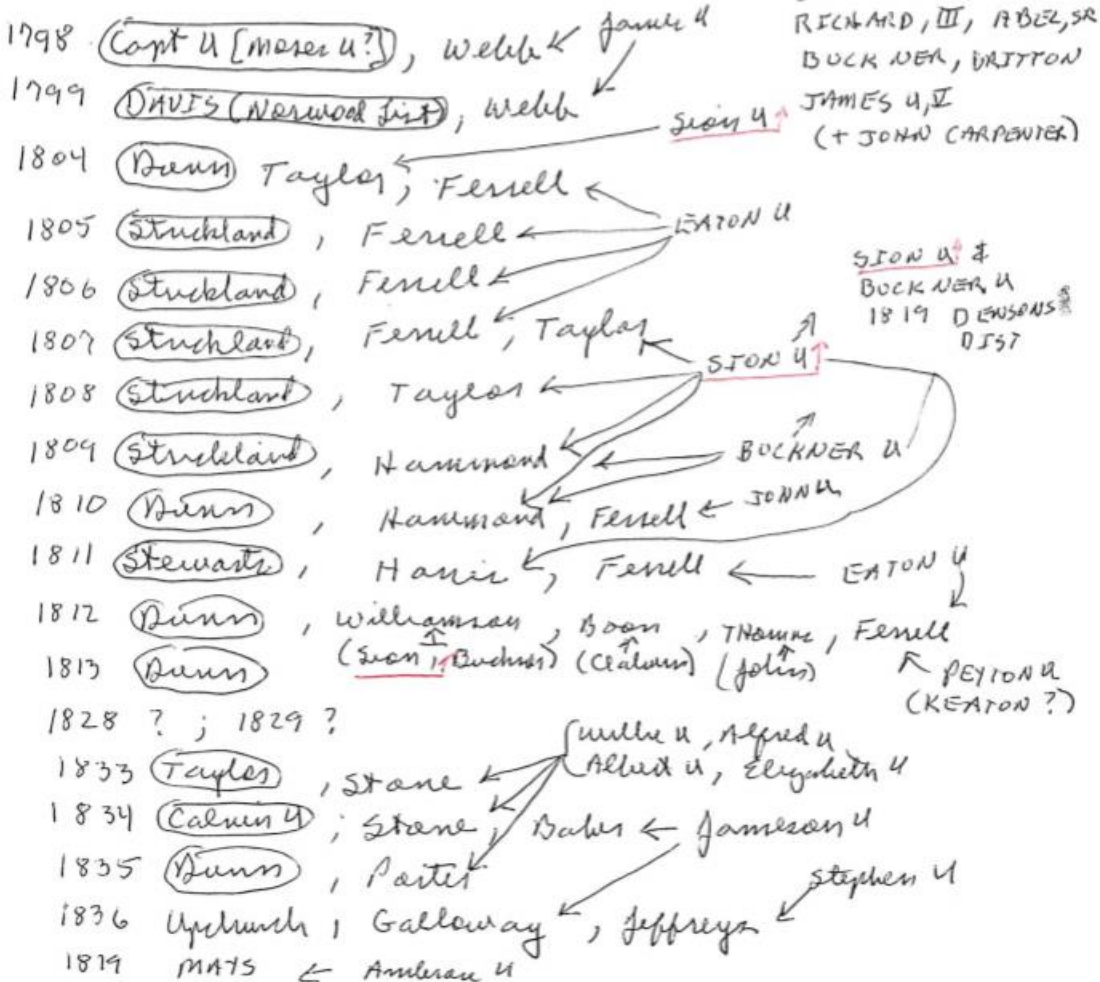 RICHARD, III, ABEL, SR
BUCKNER, BRITTON
JAMES U, V
(+ JOHN CARPENTER)
1798 Capt U [Moses U?], Webb ← James U
1799 DAVIS (Norwood List), Webb
Sion U ↑
1804 Dunn Taylor, Ferrell
EATON U
1805 Strickland, Ferrell
1806 Strickland, Ferrell
SION U ↑ &
BUCKNER U
1819 DENSONS
DIST
1807 Strickland, Ferrell, Taylor
SION U ↑
1808 Strickland, Taylor
1809 Strickland, Hammond ← BUCKNER U
1810 Dunn, Hammond, Ferrell ← JOHN U
1811 Stewarts, Harris, Ferrell ← EATON U
1812 Dunn, Williamson, Boon, Ferrell
(Sion, Buckner) (John)
1813 Dunn
PEYTON U
(KEATON ?)
1828 ? ; 1829 ?
Willie U, Alfred U
Albert U, Elizabeth U
1833 Taylor, Stone
1834 Calvin U ; Stone, Baker ← Jameson U
1835 Dunn, Porter
Stephen U
1836 Upchurch, Galloway, Jeffreys
1819 MAYS ← Ambrose U